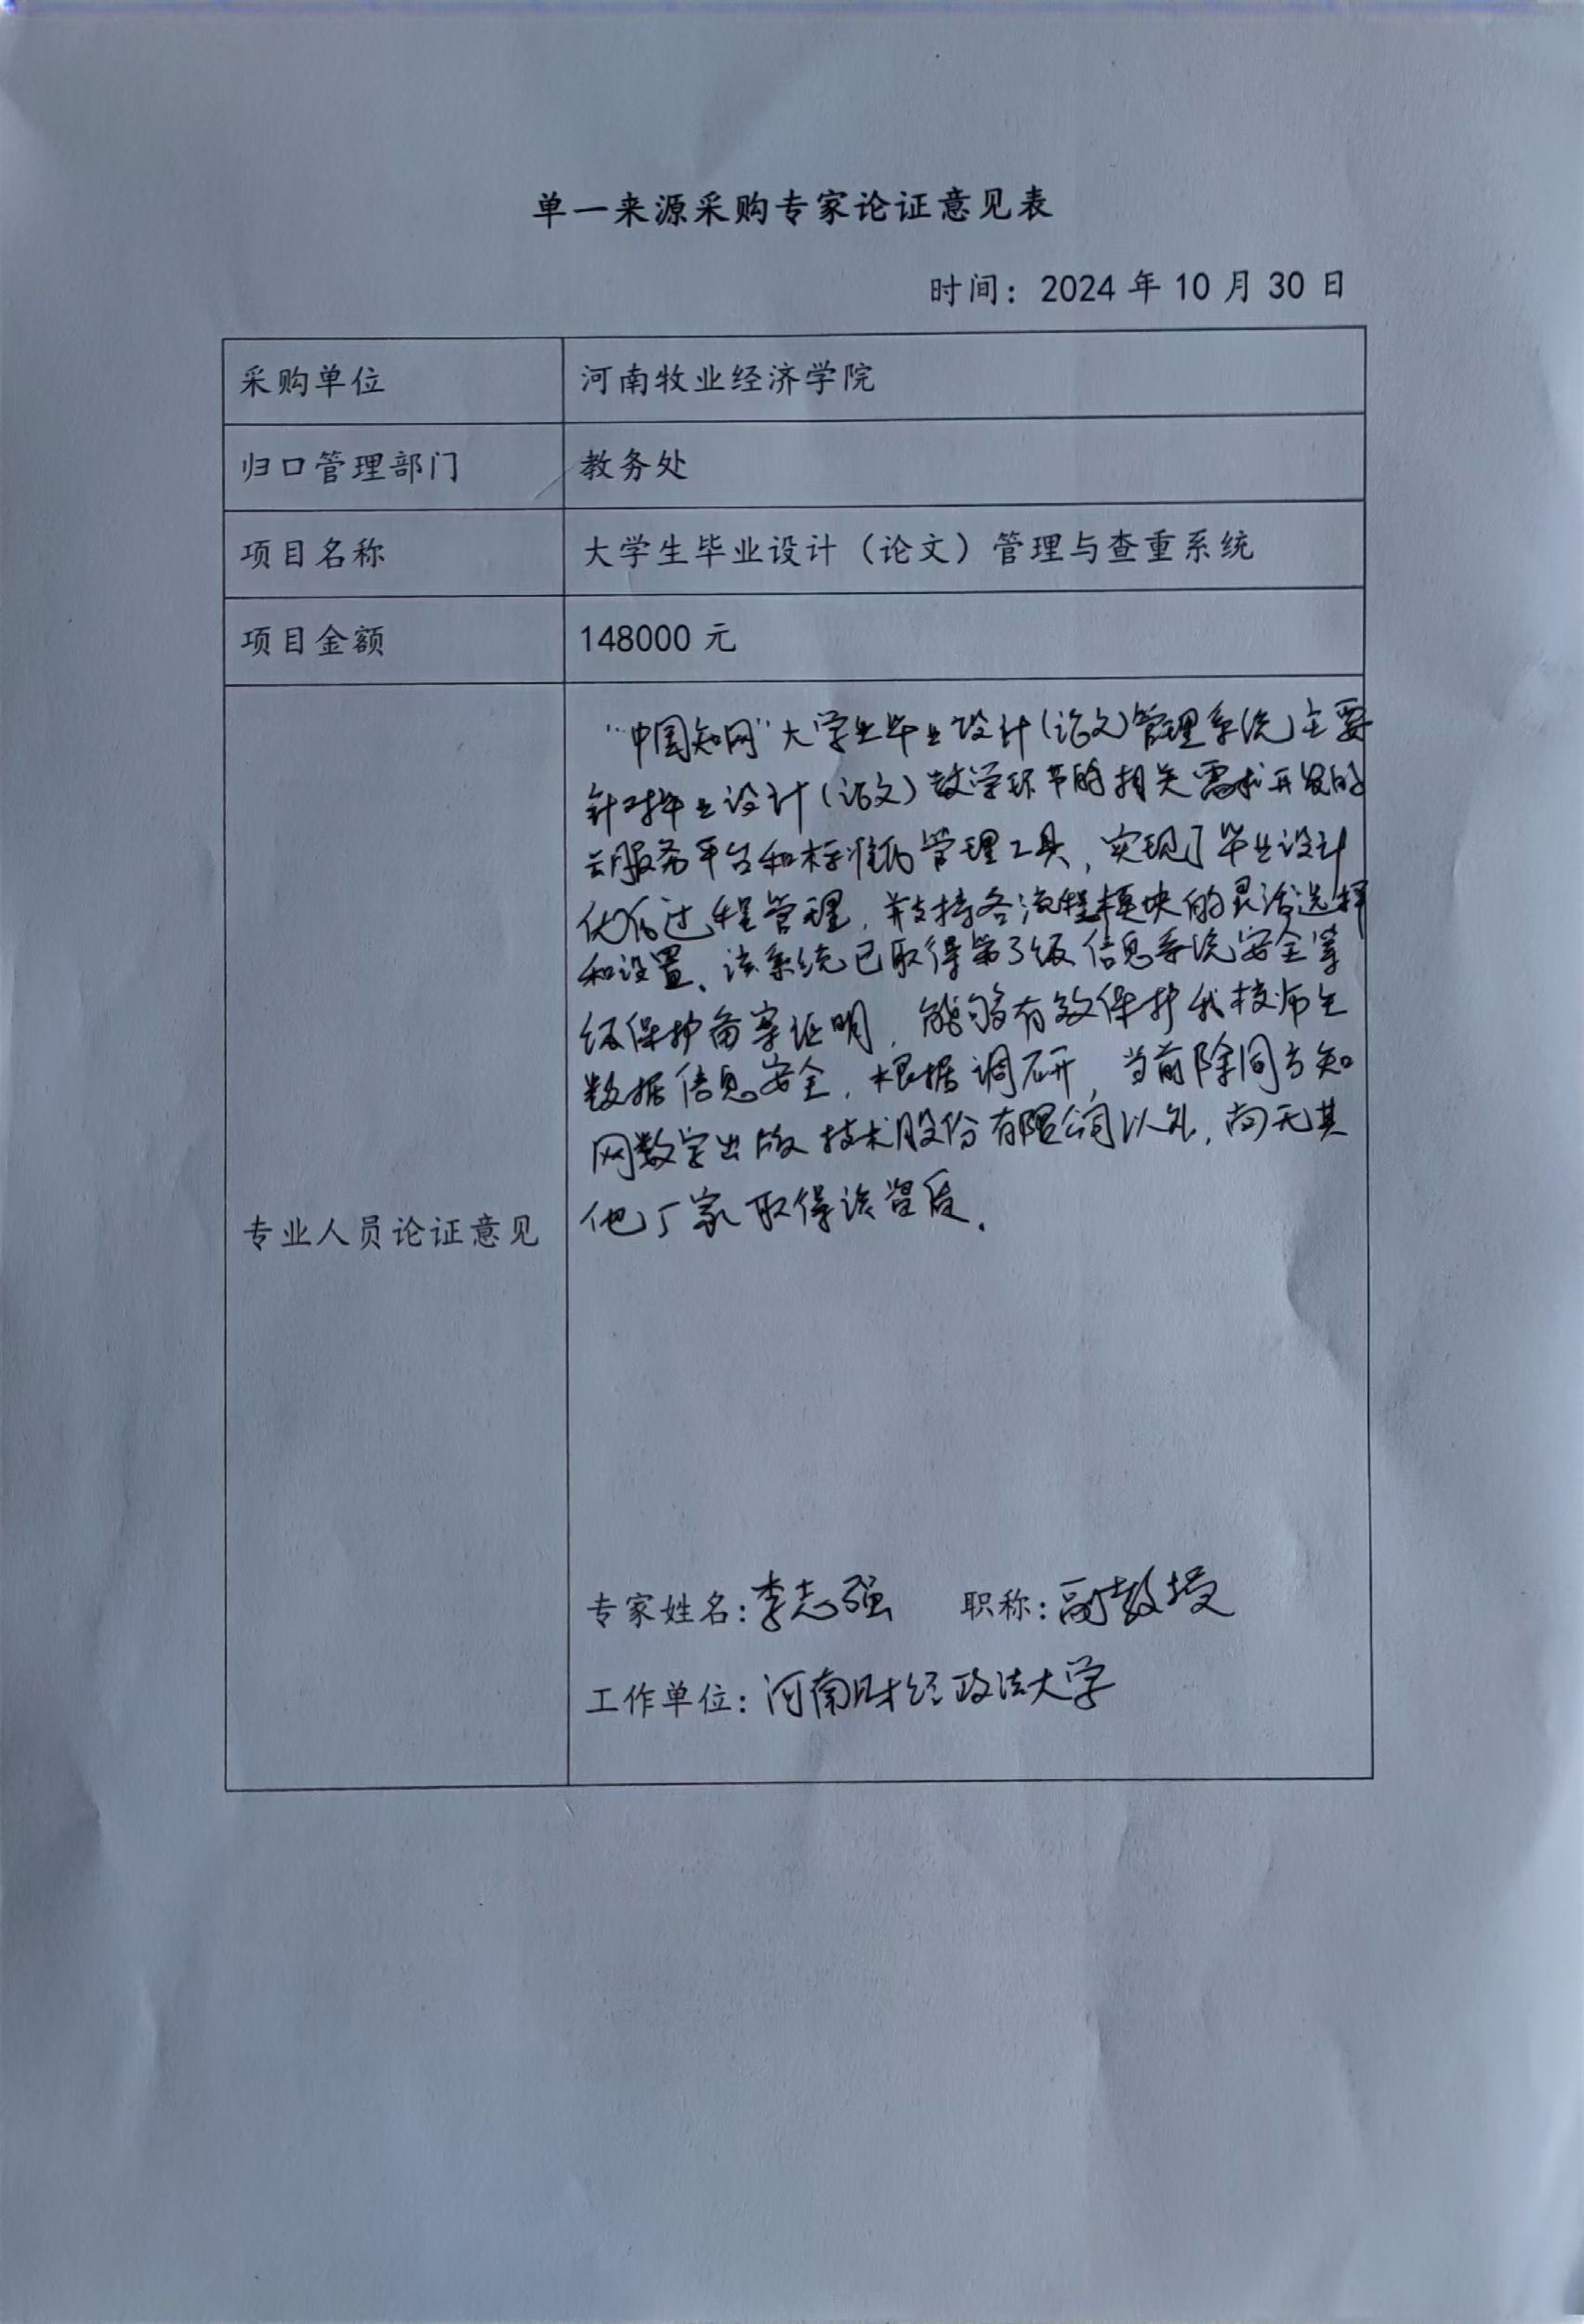 单一来源采购专家论证意见表
时间：2024 年 10 月 30 日
采购单位
河南牧业经济学院
归口管理部门
教务处
项目名称
大学生毕业设计（论文）管理与查重系统
项目金额
148000 元
专业人员论证意见
“中国知网”大学生毕业设计(论文)管理系统主要
针对毕业设计(论文)教学环节的相关需求开发的
云服务平台和标准的管理工具，实现了毕业设计
优化过程管理，并支持各流程模块的灵活选择
和设置。该系统已取得第3级信息系统安全等
级保护备案证明，能够有效保护我校师生
数据信息安全，根据调研，当前除同方知
网数字出版技术股份有限公司以外，尚无其
他厂家取得该资质。
专家姓名：李志强 职称：副教授
工作单位：河南财经政法大学